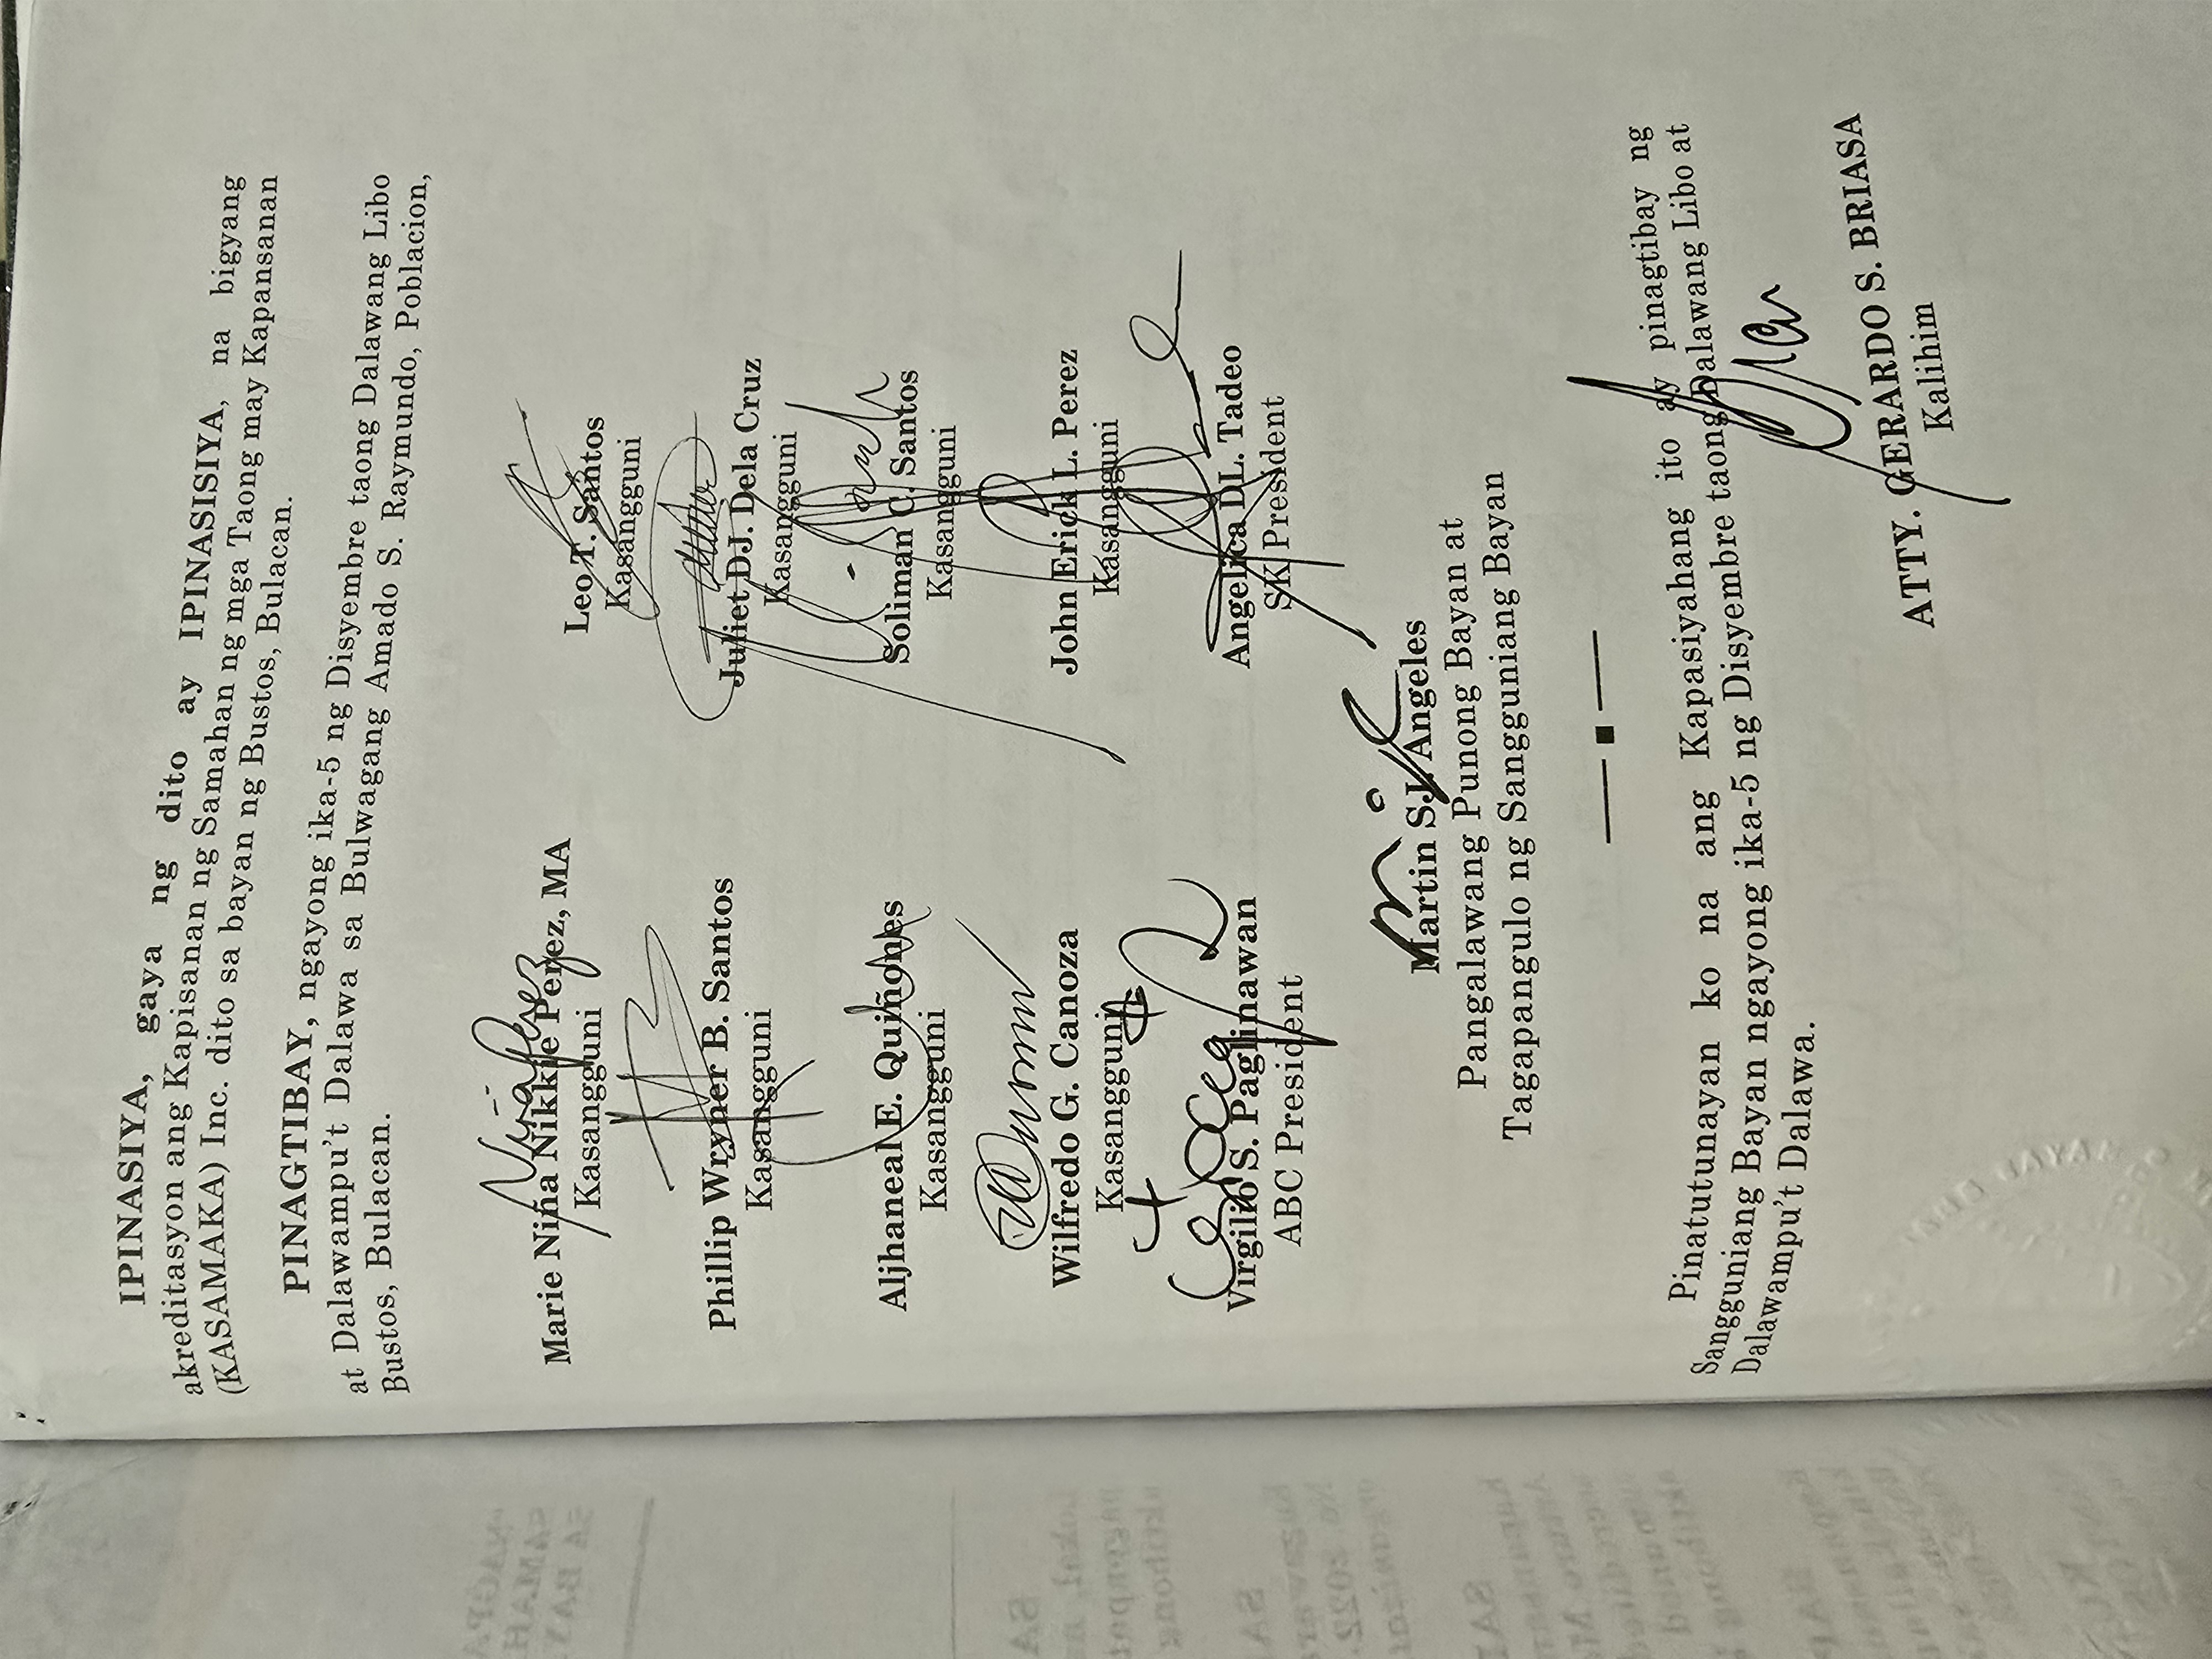 IPINASIYA, gaya ng dito ay IPINASISIYA, na bigyang
akreditasyon ang Kapisanan ng Samahan ng mga Taong may Kapansanan
(KASAMAKA) Inc. dito sa bayan ng Bustos, Bulacan.
PINAGTIBAY, ngayong ika-5 ng Disyembre taong Dalawang Libo
at Dalawampu't Dalawa sa Bulwagang Amado S. Raymundo, Poblacion,
Bustos, Bulacan.
Marie Niña Nikki Perez, MA
Kasangguni
Leo T. Santos
Kasangguni
Phillip Wryner B. Santos
Kasangguni
Juliet DJ. Dela Cruz
Kasangguni
Aljhaneal E. Quiñones
Kasangguni
Soliman C. Santos
Kasangguni
Wilfredo G. Canoza
Kasangguni
John Erick L. Perez
Kasangguni
Virgilio S. Paglinawan
ABC President
Angelica DL. Tadeo
SK President
Martin S.J. Angeles
Pangalawang Punong Bayan at
Tagapangulo ng Sangguniang Bayan
Pinatutunayan ko na ang Kapasiyahang ito ay pinagtibay ng
Sangguniang Bayan ngayong ika-5 ng Disyembre taong Dalawang Libo at
Dalawampu't Dalawa.
ATTY. GERARDO S. BRIASA
Kalihim